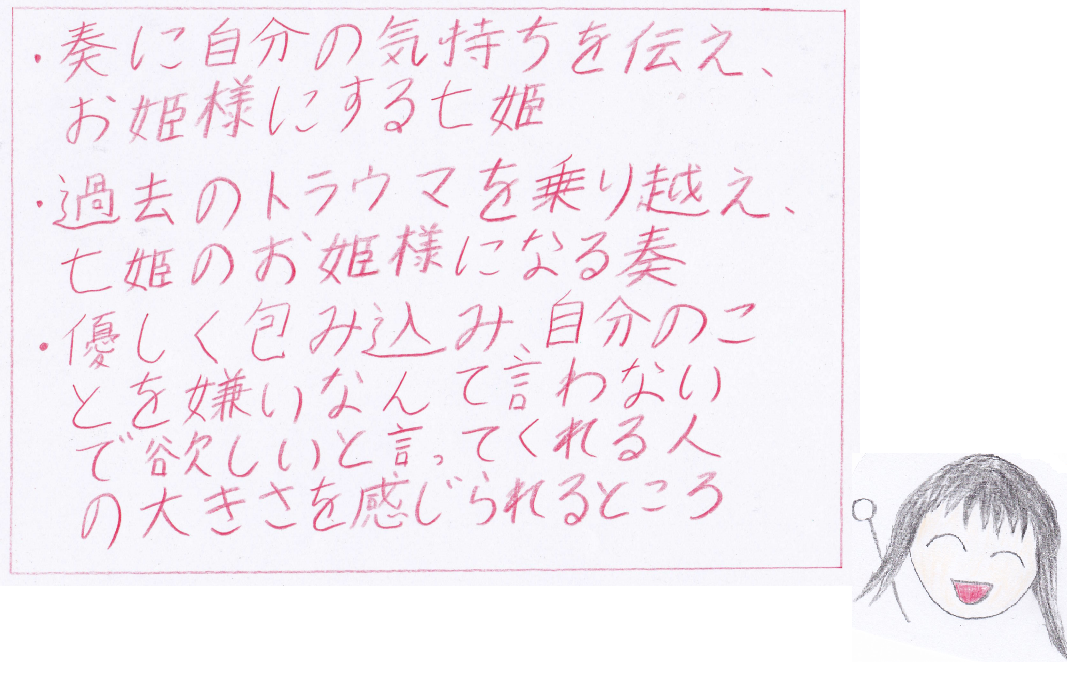 ・奏に自分の気持ちを伝え、
お姫様にする七姫
・過去のトラウマを乗り越え、
七姫のお姫様になる奏
・優しく包み込み、自分のこ
とを嫌いなんて言わない
で欲しいと言ってくれる人
の大きさを感じられるところ